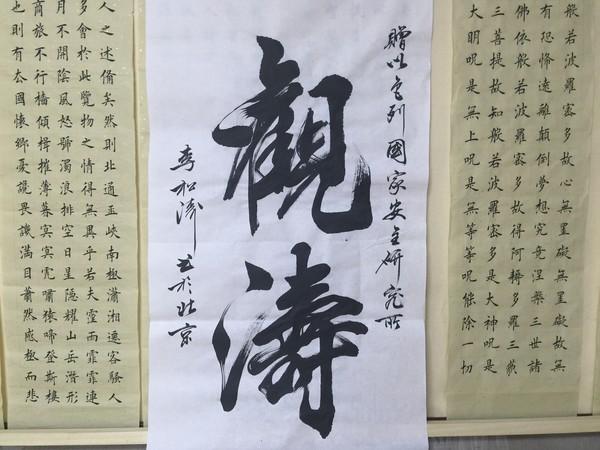 般若波羅蜜多故心無罣礙無罣礙故無
有恐怖遠離顛倒夢想究竟涅槃三世諸
佛依般若波羅蜜多故得阿耨多羅三藐
三菩提故知般若波羅蜜多是大神呪是
大明呪是無上呪是無等等呪能除一切
贈以色列國家安全研究所
觀濤
李和濤书於北京
人之述備矣然則北通巫峽南極瀟湘遷客騷人
多會於此覽物之情得無異乎若夫霪雨霏霏連
月不開陰風怒號濁浪排空日星隱耀山岳潛形
商旅不行檣傾楫摧薄暮冥冥虎嘯猿啼登斯樓
也則有去國懷鄉憂讒畏譏滿目蕭然感極而悲